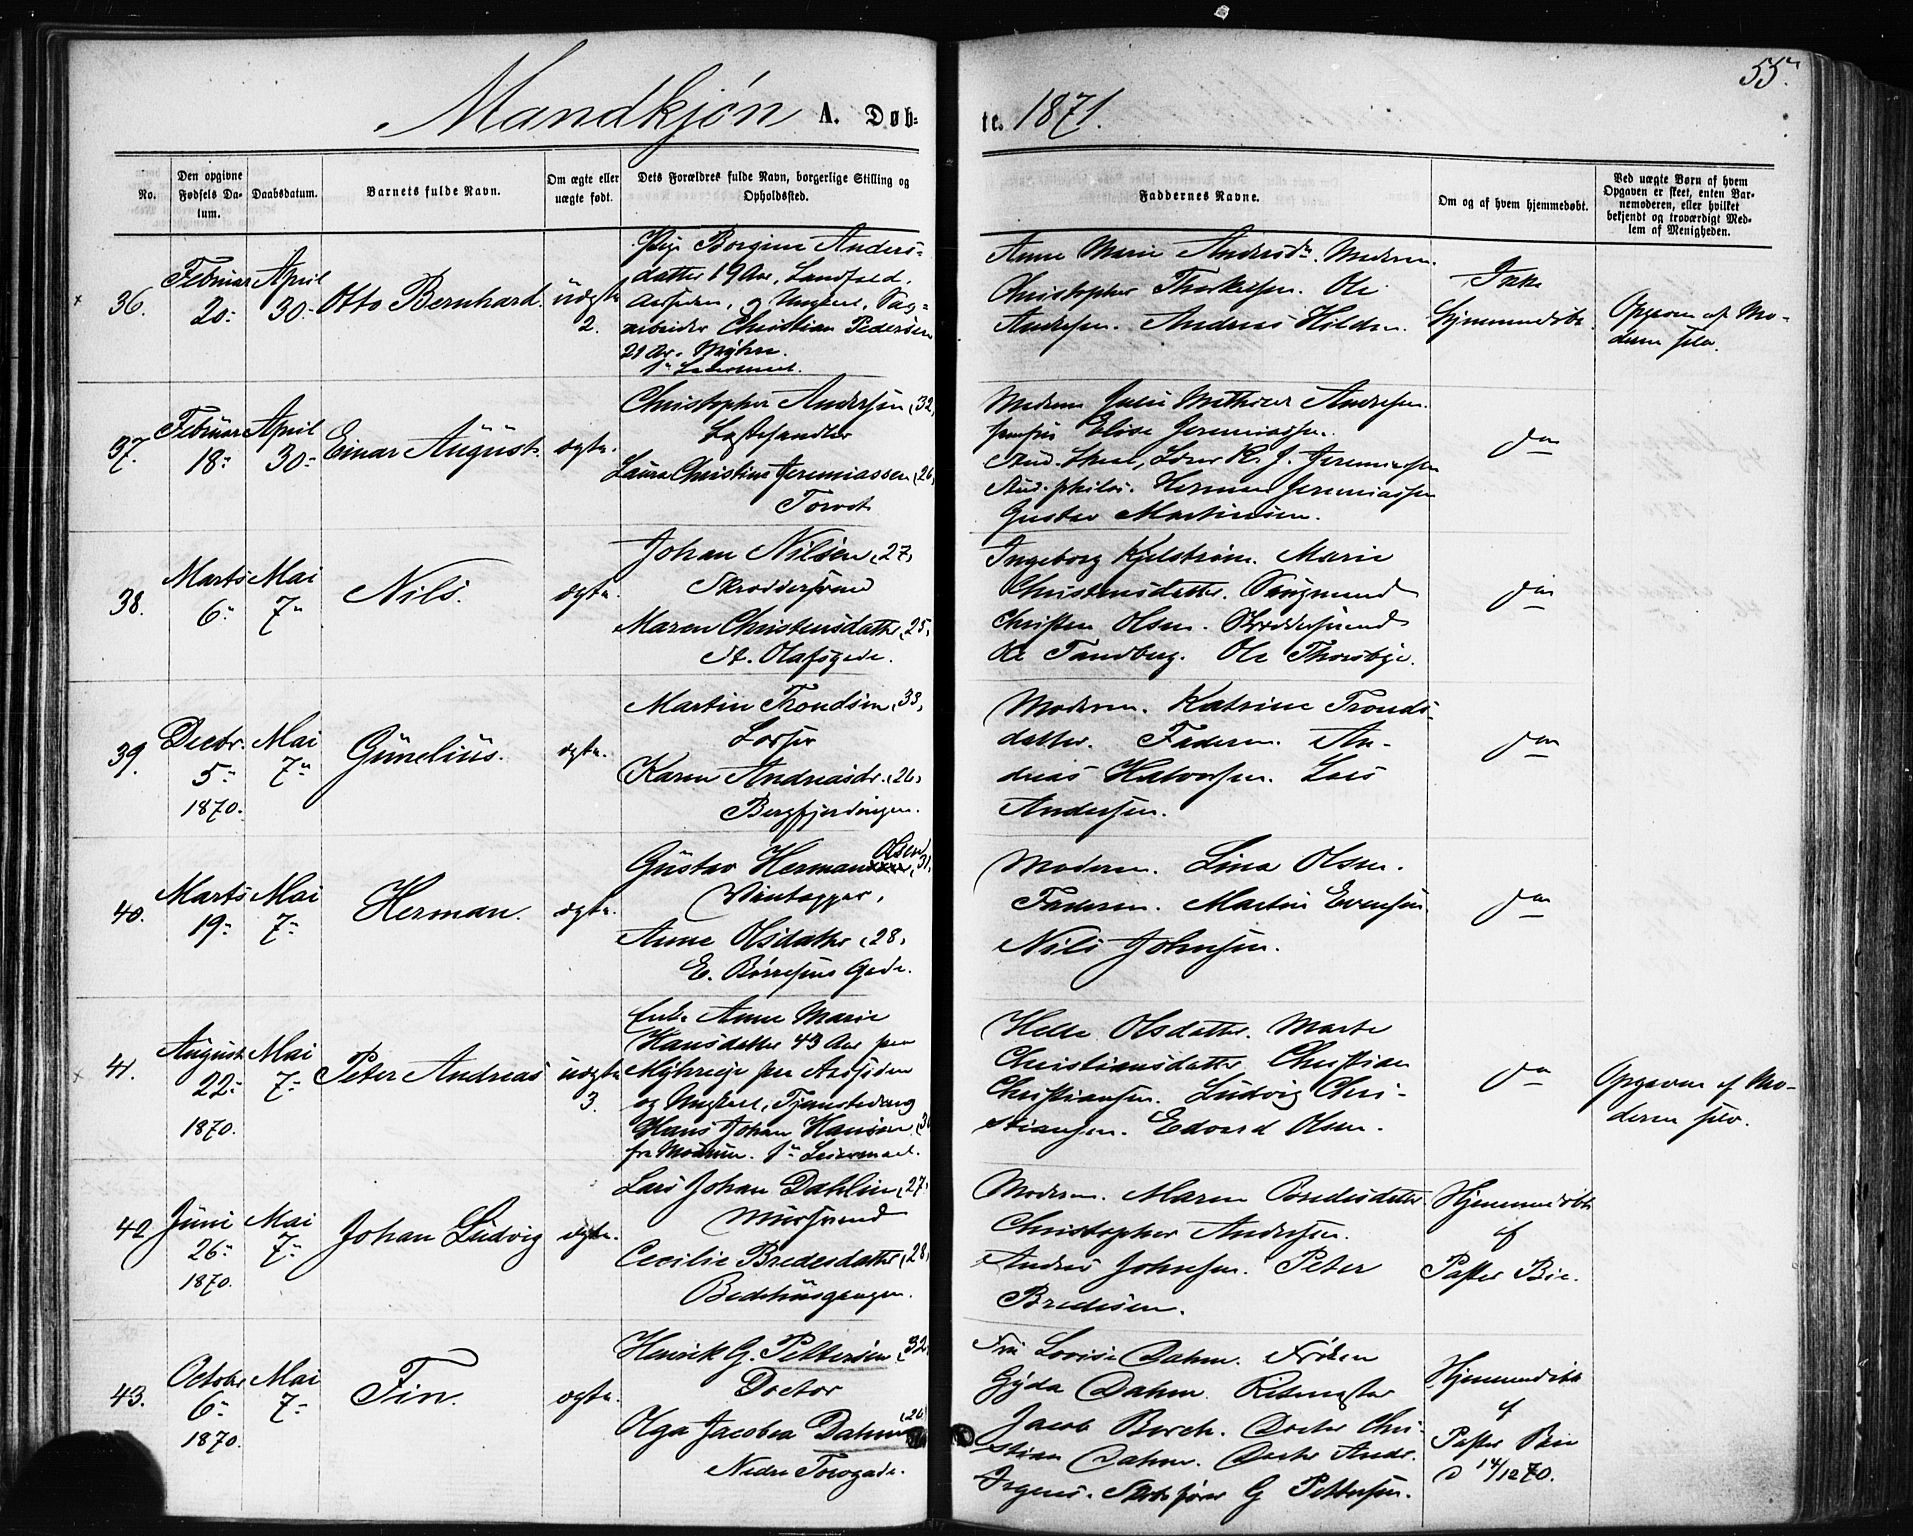 55.
Mandkjøn A. Døb-
te. 1871.
No.
Den opgivne Fødsels Datum.
Daabsdatum.
Barnets fulde Navn.
Om ægte eller uægte født.
Dets Forældres fulde Navn, borgerlige Stilling og Opholdssted.
Faddernes Navne.
Om og af hvem hjemmedøbt.
Ved uægte Børn af hvem Opgaven er skeet, enten Barnemoderen, eller hvilket bekjendt og troværdigt Medlem af Menigheden.
36.
Februar
20
April
30
Otto Bernhard.
uægte
2.
Pige Borgine Anders-
datter 19 Aar, Landfald,
og Ungkarl,
arbeider Christian Pedersen
Anne Marie Andersdr. Moderen.
Christopher Ole
Andersen. Andreas Hilden.
Ikke
Hjemmedøbt.
Opgaven af Mo-
deren selv.
37.
Februar
18
April
30
Einar August.
ægte.
Christopher Andersen (32)
Laura Christine Jeremiassen (26)
Torvet
Moderen Julie Andersen.
Jomfru Elise Jeremiassen.
K. J. Jeremiassen
Stud. philos. Herman Jeremiassen
Gustav Martinsen.
do
38.
Marts
6
Mai
7
Nils.
ægte.
Johan Nilsen (27)
Skræddersvend
Maren Christensdatter (25)
St. Olafsgade.
Ingeborg Kjelstrøm. Marie
Christensdatter. Saugmand
Christen Olsen. Skræddersvend
Ole Tandberg. Ole Thorsbye.
do
39.
Decbr.
5
1870.
Mai
7
Gunelius.
ægte.
Martin Trondsen (33)
Losser
Karen Andreasdr. (26)
Bergfjerdingen.
Moderen. Katrine Tronds-
datter. Faderen. An-
dreas Halvorsen. Lars
Andersen.
do
40.
Marts
19
Mai
7
Herman.
ægte.
Gustav Herman Olsen (31)
Vintapper,
Anne Olsdatter (28)
E. Børresens Gade.
Moderen. Lina Olsen.
Faderen. Martin Evensen.
Nils Johnsen.
do
41.
August
22
1870.
Mai
7
Peter Andreas
uægte
3.
Enke Anne Marie
Hansdatter 43 Aar paa
og Ungkarl, Tjenestedreng
Hans Johan Hansen
fra Modum. 1ste Leiermaal.
Helle Olsdatter. Marte
Christiansdatter. Christian
Christiansen. Ludvig Chri-
stiansen. Edvard Olsen.
do
Opgaven af Mo-
deren selv.
42.
Juni
26
1870.
Mai
7
Johan Ludvig
ægte.
Lars Johan Dahlin (27)
Mursvend
Cecilie Bredesdatter (28)
Bedehusgangen.
Moderen. Maren Bredesdatter.
Christopher Andersen.
Andreas Johnsen. Peter
Bredesen.
Hjemmedøbt
af
Pastor Bie.
43.
October
6
1870.
Mai
7
Fin.
ægte.
Henrik G. Pettersen (32)
Doctor
Olga Jacobea Dahm (26)
Nedre Torvgade.
Fru Lovise Dahm. Frøken
Gyda Dahm. Ritmester
Jacob Borch. Doctor Chri-
stian Dahm. Doctor Andr.
Irgens. G Pettersen.
Hjemmedøbt
af
Pastor Bie
d 14/12 70.